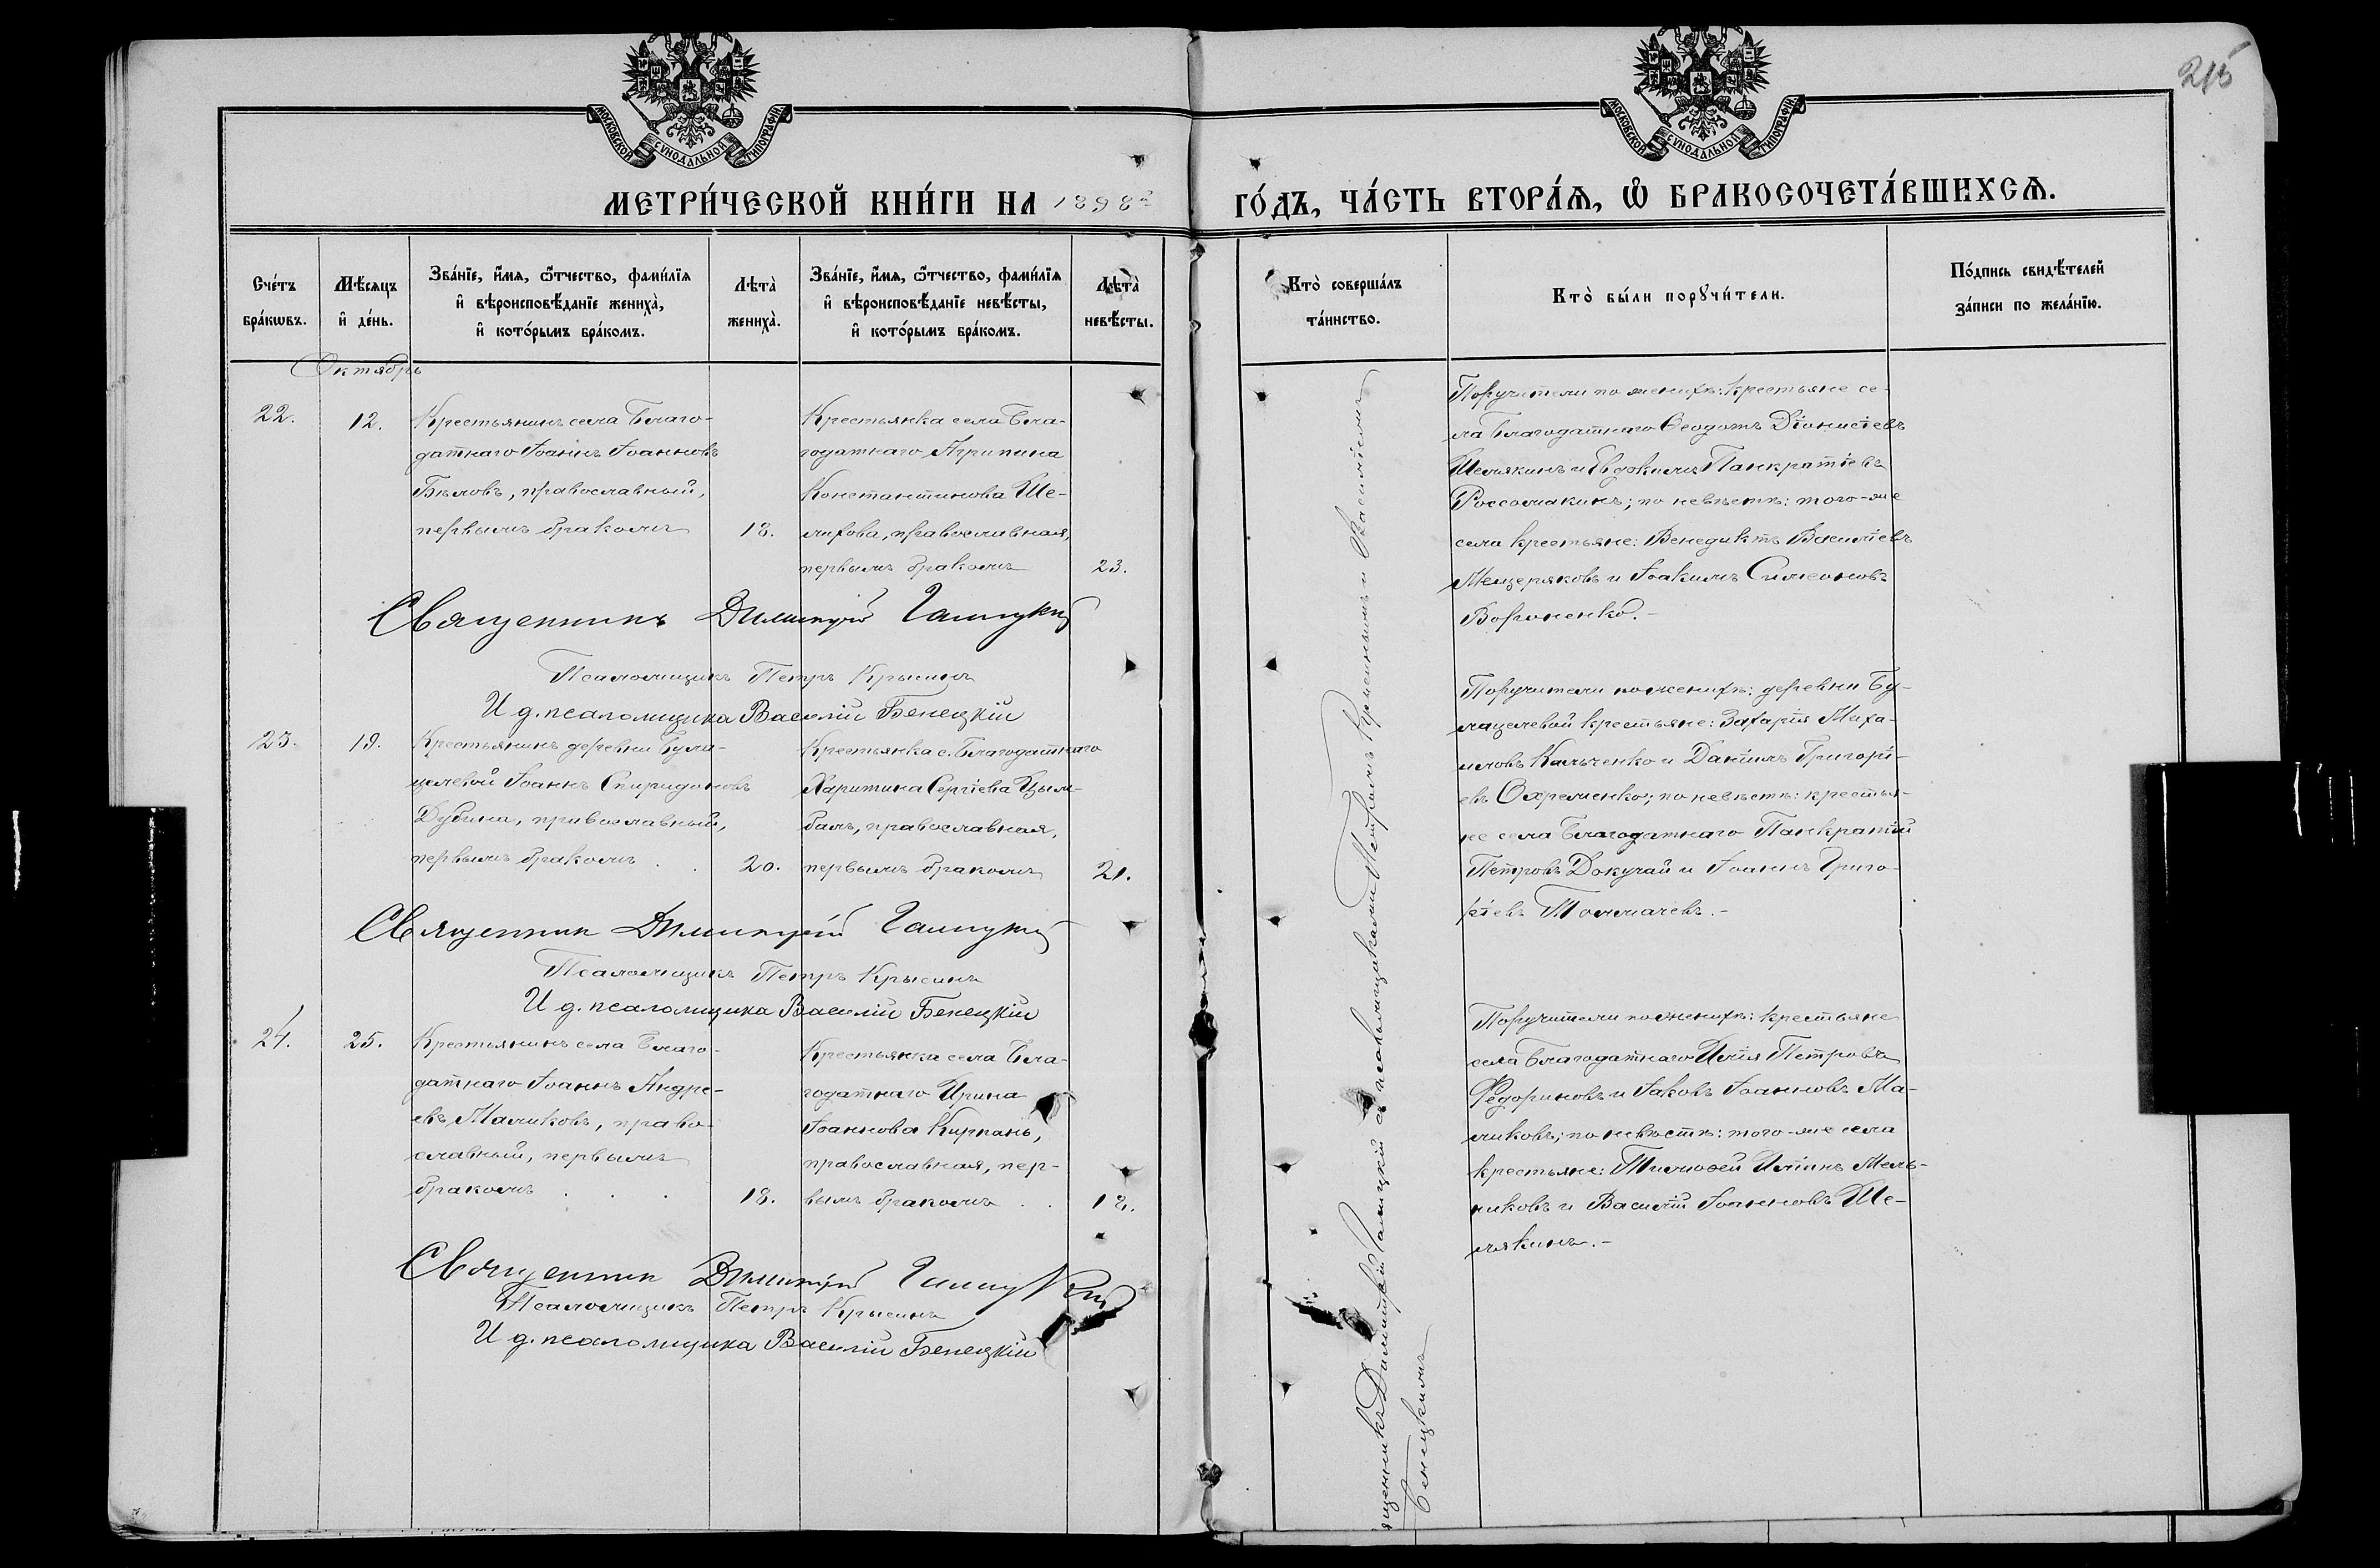 215
МОСКОВСКОЙ СУНОДАЛЬНОЙ ТИПОГРАФІИ
МОСКОВСКОЙ СУНОДАЛЬНОЙ ТИПОГРАФІИ
МЕТРИ́ЧЕСКОЙ КНИ́ГИ НА 1898й
ГО́ДЪ, ЧА́СТЬ ВТОРА́Ѧ, Ѡ҆ БРАКОСОЧЕТА́ВШИХСѦ.
Сче́тъ бра́кѡвъ.
Мѣ́сѧцъ и҆ де́нь.
Зва́нїе, и҆́мѧ, ѻ҆́тчество, фами́лїѧ
и҆ вѣроисповѣ́данїе жениха̀,
и҆ кото́рымъ бра́комъ.
Лѣта̀ жениха̀.
Зва́нїе, и҆́мѧ, ѻ҆́тчество, фами́лїѧ
и҆ вѣроисповѣ́данїе невѣ́сты,
и҆ кото́рымъ бра́комъ.
Лѣта̀ невѣ́сты.
Кто̀ соверша́лъ
та́инство.
Кто̀ бы́ли порꙋчи́тели.
По́дпись свидѣ́телей
за́писи по жела́нїю.
Октябрь
22.
12.
Крестьянинъ села Благо-
датнаго Іоаннъ Іоанновъ
Бѣловъ, православный,
первымъ бракомъ
18.
Крестьянка села Бла-
годатнаго Агрипина
Константинова Ше-
лихова, православная,
первымъ бракомъ
23.
Поручители по женихѣ: крестьяне се-
ла Благодатнаго Ѳеодотъ Діонисіевъ
Шемякинъ и Евдокимъ Панкратіевъ
Россомакинъ; по невѣстѣ: того-же
села крестьяне: Венедиктъ Василіевъ
Мещеряковъ и Іоакимъ Симеоновъ
Вороненко.-
Священникъ Димитрій Галицкій
Псаломщикъ Петръ Крысинъ
И д. псаломщика Василій Бенецкій
23.
19.
Крестьянинъ деревни Була-
целевой Іоаннъ Спиридоновъ
Дубина, православный,
первымъ бракомъ .
20.
Крестьянка с. Благодатнаго
Харитина Сергіева Цым-
балъ, православная,
первымъ бракомъ
21.
Поручители по женихѣ: деревни Бу-
лацелевой крестьяне: Захарія Миха-
иловъ Кальченко и Даніилъ Григорі-
евъ Охременко; по невѣстѣ: крестья-
не села Благодатнаго Панкратій
Петровъ Докучай и Іоаннъ Григо-
ріевъ Толмачевъ.-
Священник Димитрій Галицкій
Псаломщикъ Петръ Крысинъ
И д. псаломщика Василій Бенецкій
24.
25.
Крестьянинъ села Благо-
датнаго Іоаннъ Андре-
евъ Маликовъ, право-
славный, первымъ
бракомъ . . .
18.
Крестьянка села Бла-
годатнаго Ирина
Іоаннова Кирпань,
православная, пер-
вымъ бракомъ . .
18.
Поручители по женихѣ: крестьяне
села Благодатнаго Илія Петровъ
Федориновъ и Іаковъ Іоанновъ Ма-
ликовъ; по невѣстѣ: того-же села
крестьяне: Тимоѳей Иліинъ Мель-
никовъ и Василій Іоанновъ Ше-
мякинъ.-
Священник Димитрій Галицкій
Псаломщикъ Петръ Крысинъ
И д. псаломщика Василій Бенецкій
ященникъ Димитрій Галицкій съ псаломщиками Петромъ Крысинымъ и Василіемъ
Бенецкимъ